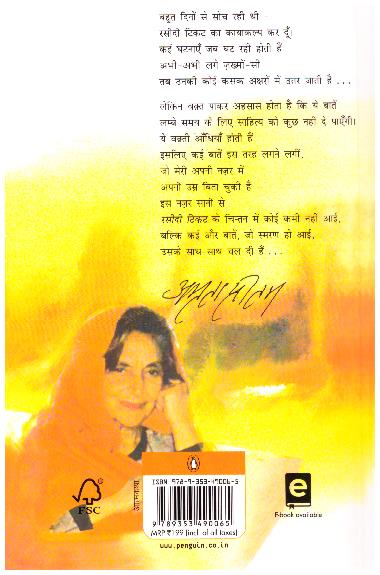 बहुत दिनों से सोच रही थी -
रसीदी टिकट का कायाकल्प कर दूँ।
कई घटनाएँ जब घट रही होती हैं
अभी-अभी लगे ज़ख़्मों-सी
तब उनकी कोई कसक अक्षरों में उतर जाती है ...
लेकिन वक़्त पाकर अहसास होता है कि ये बातें
लम्बे समय के लिए साहित्य को कुछ नहीं दे पाएँगी।
ये वक़्ती आँधियाँ होती हैं
इसलिए कई बातें इस तरह लगने लगीं,
जो मेरी अपनी नज़र में
अपनी उम्र बिता चुकी हैं
इस नज़र सानी से
रसीदी टिकट के चिन्तन में कोई कमी नहीं आई,
बल्कि कई और बातें, जो स्मरण हो आईं,
उसके साथ-साथ चल दी हैं ...
अमृता प्रीतम
FSC
आत्मकथा
ISBN 978-9-353-49006-5
9 789353 490065
MRP ₹199 (incl. of all taxes)
www.penguin.co.in
e
E-book available